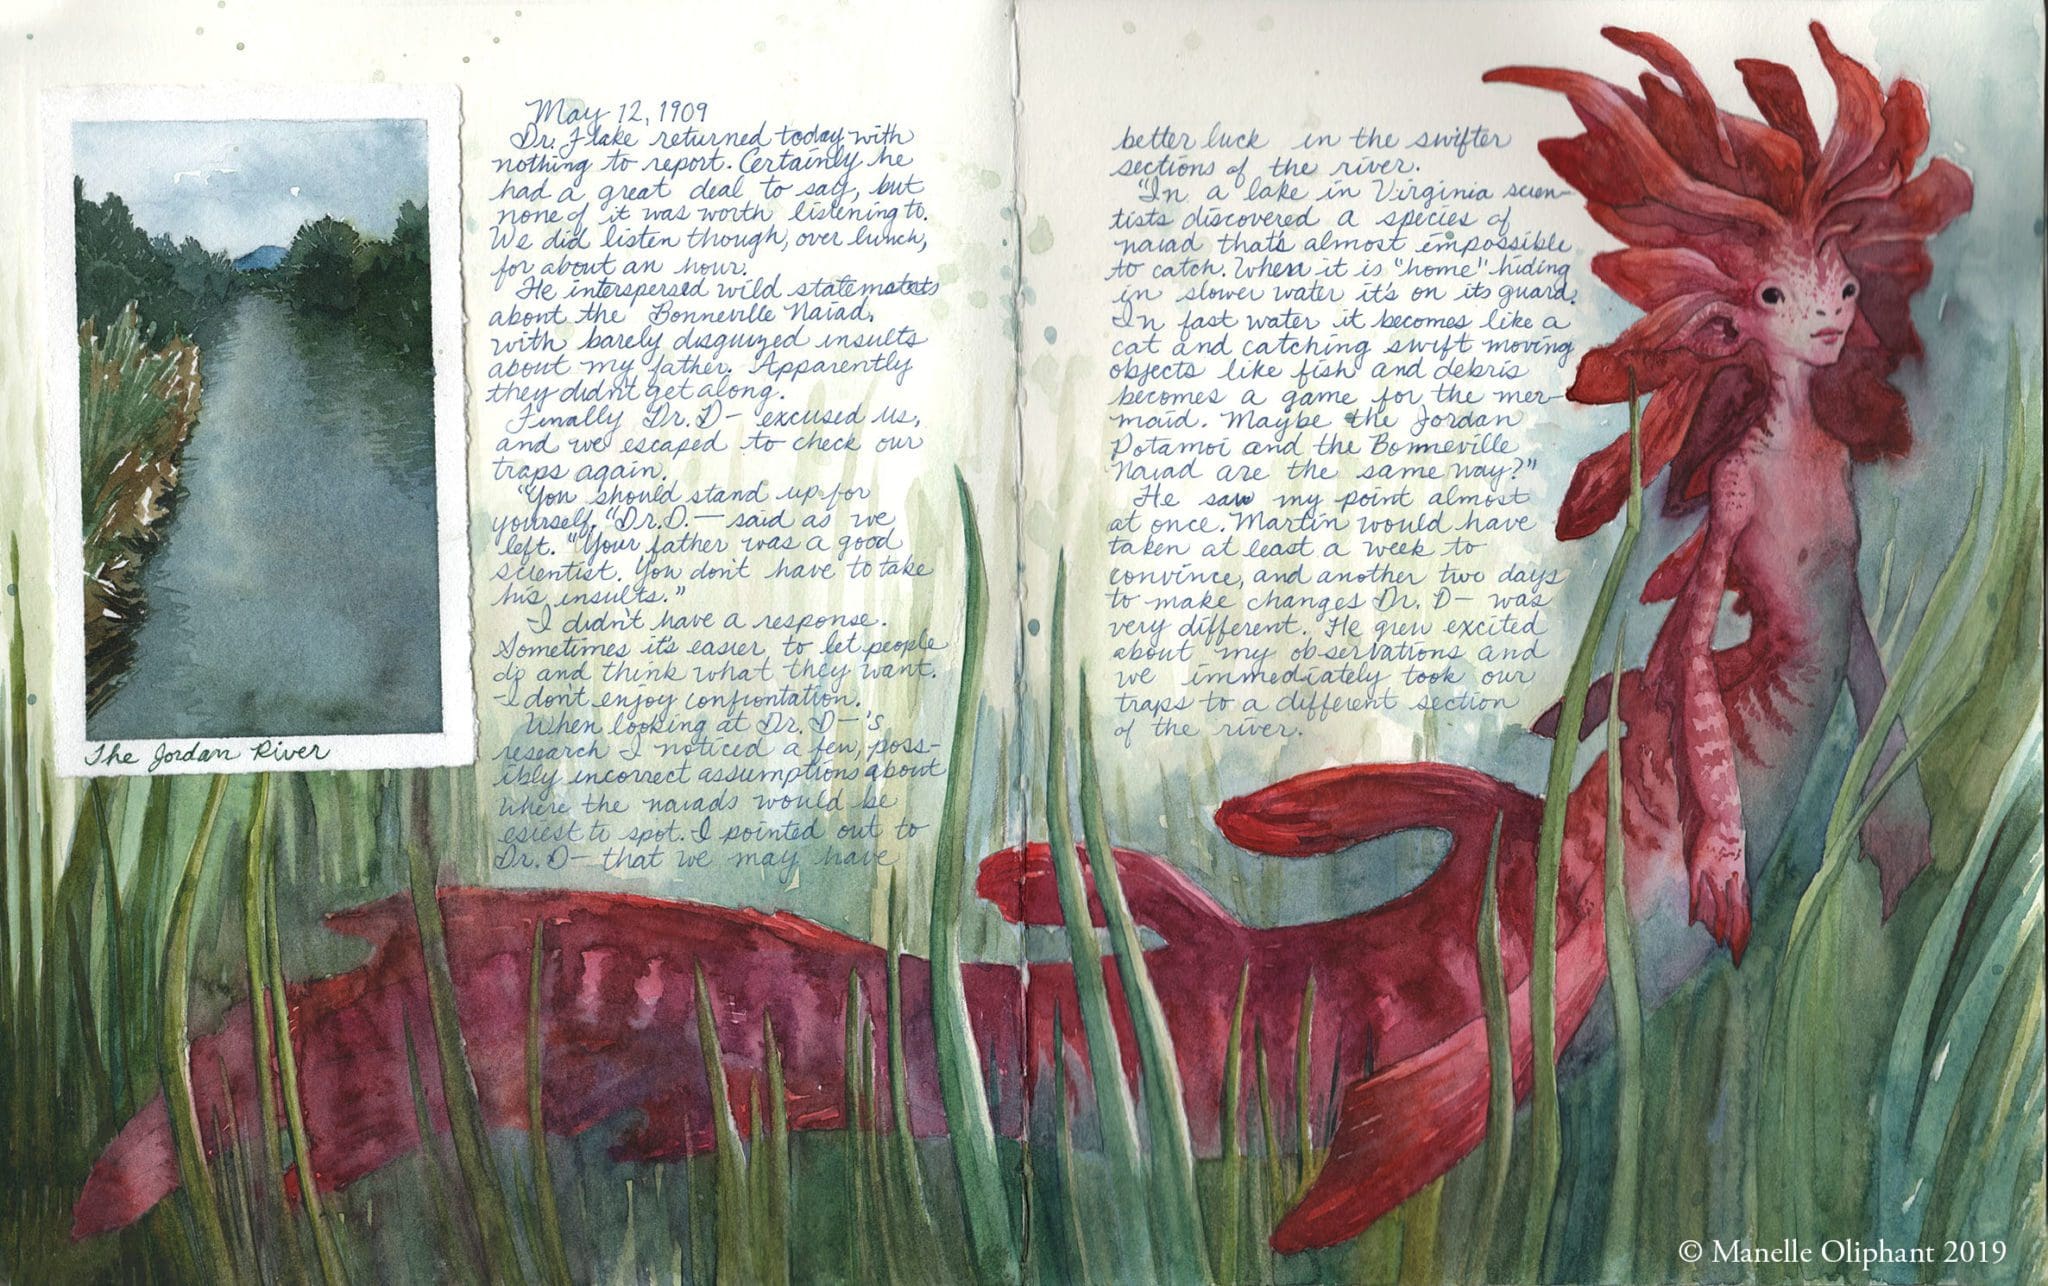 The Jordan River
May 12, 1909
Dr. Flake returned today with
nothing to report. Certainly he
had a great deal to say, but
none of it was worth listening to.
We did listen though, over lunch,
for about an hour.
He interspersed wild
about the Bonneville Naiad,
with barely disguized insults
about my father. Apparently
they didn't get along.
Finally Dr. D- excused us,
and we escaped to check our
traps again.
"You should stand up for
yourself." Dr. D.- said as we
left. "Your father was a good
scientist. You don't have to take
his insults."
I didn't have a response.
Sometimes it's easier to let people
do and think what they want.
I don't enjoy confrontation.
When looking at Dr. D-'s
research I noticed a few, poss-
ibly incorrect assumptions about
where the naiads would be
esiest to spot. I pointed out to
Dr. D- that we may have
better luck in the swifter
sections of the river.
"In a lake in Virginia scien-
tists discovered a species of
naiad thats almost impossible
to catch. When it is "home" hiding
in slower water it's on its guard.
In fast water it becomes like a
cat and catching swift moving
objects like fish and debris
becomes a game for the mer-
maid. Maybe the Jordan
Potamoi and the Bonneville
Naiad are the same way?"
He saw my point almost
at once. Martin would have
taken at least a week to
convince, and another two days
to make changes Dr. D- was
very different. He grew excited
about my observations and
we immediately took our
traps to a different section
of the river.
© Manelle Oliphant 2019